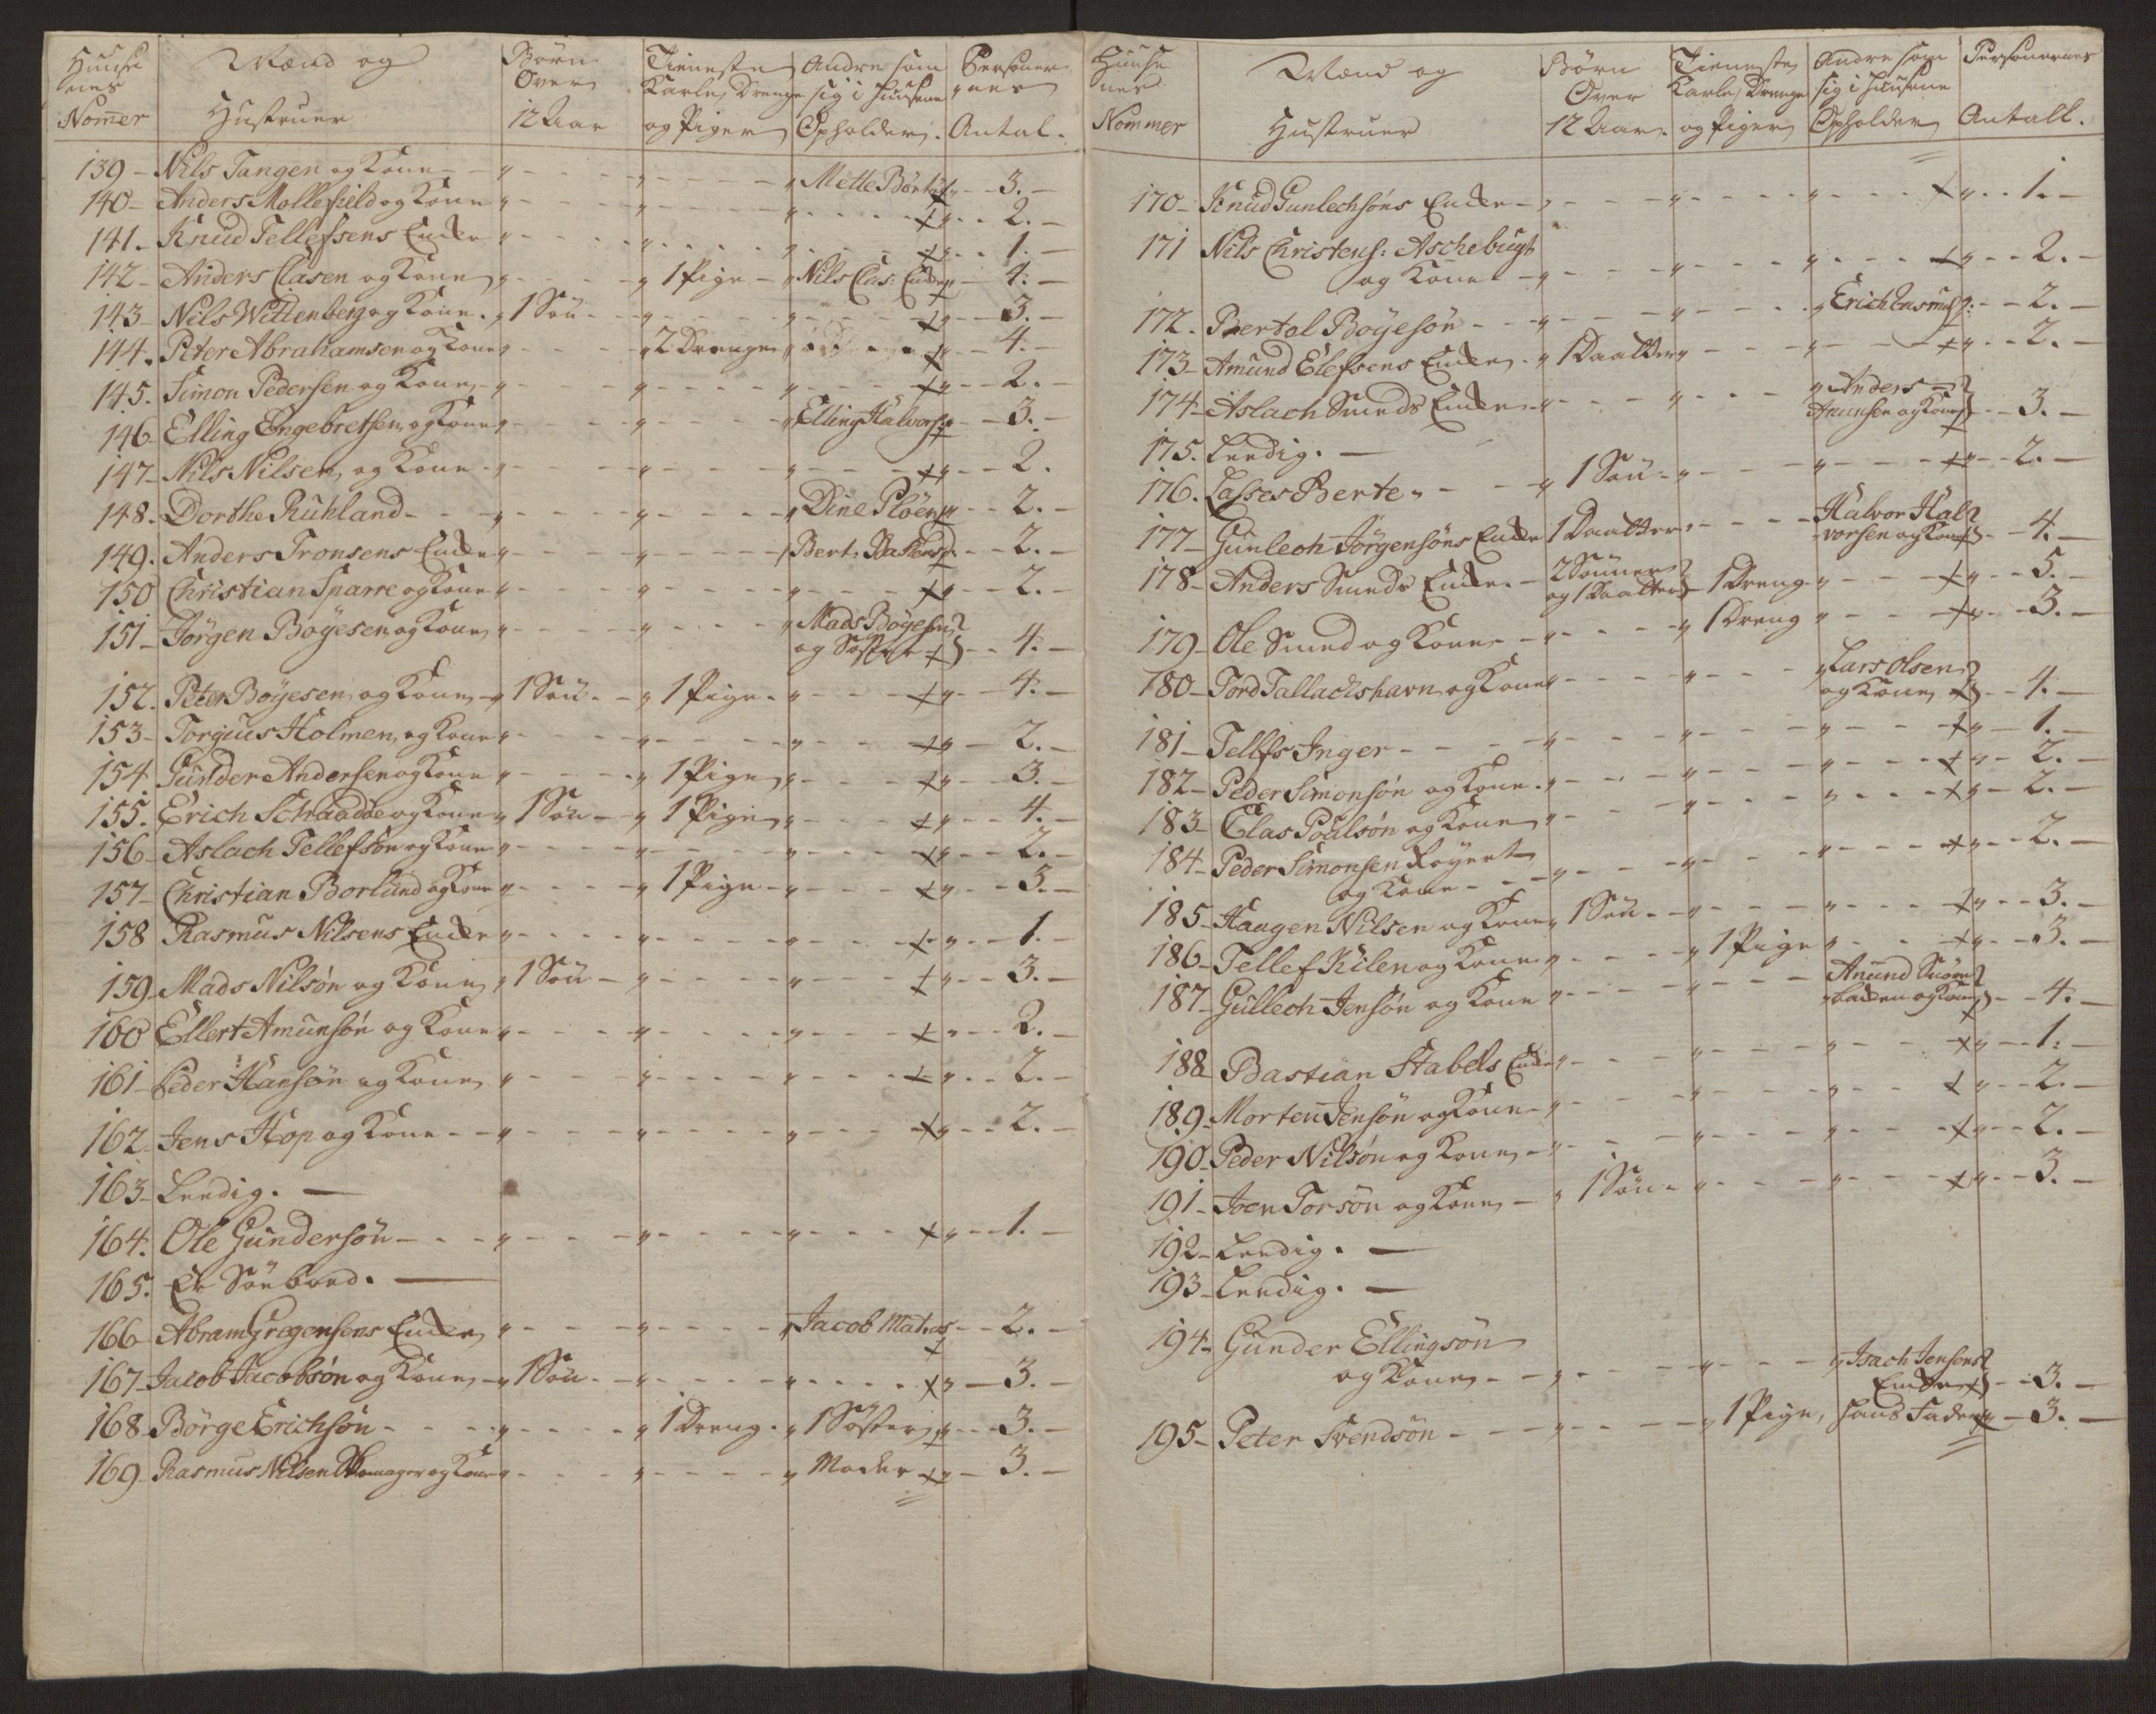 Huuse Mænd og Børn Tieneste Andre som Personer
nes Over Karle, Drenge sig i Huusene nes
Nomer Hustruer 12 Aar og Piger Opholder. Antal.
139 - Nils Tangen og Kone - " - - - " - - - " Mette - - 3. -
140 - Anders Mollefield og Kone " - - - " - - - " - - - " - - 2. -
141 - Knud Tellefsens Encke " - - - " - - - " - - - " - - 1. -
142 - Anders Clasen og Kone " - - - " 1 Pige - " Nils Clas: Encke " - 4. -
143 - Nils Wittenberg og Kone. " 1 Søn - - " - - - " - - - " - - 3. -
144. Peter Abrahamsen og Kone " - - - " 2 Drenge " - - - " - - 4. -
145. Simon Pedersen og Kone - " - - - " - - - " - - - " - - 2. -
146 - Elling Engebretsen og Kone " - - - " - - - " Elling Halvors: " - - 3. -
147 - Nils Nilsen og Kone - " - - - " - - - " - - - " - - 2.
148. Dorthe Ruhland - - - " - - - " - - - " Dine Pløen " - - 2. -
149. Anders Tronsens Encke " - - - " - - - " Bert: - - 2. -
150 Christian Sparre og Kone " - - - " - - - " - - - " - - 2. -
151 - Jørgen Bøyesen og Kone " - - - " - - - " Mads Bøyesen
og Søster - - 4. -
152. Peter Bøyesen og Kone - " 1 Søn - - " 1 Pige - " - - - " - - 4. -
153 - Torgius Holmen og Kone " - - - " - - - " - - - " - - 2. -
154 Gunder Andersen og Kone " - - - " 1 Pige " - - - " - - 3. -
155. Erich Schradde og Kone " 1 Søn - " 1 Pige " - - - " - - 4. -
156 - Aslach Tellefsøn og Kone " - - - " - - - " - - - " - - 2. -
157 - Christian Borlund og Kone " - - - " 1 Pige - " - - - " - - 3. -
158 Rasmus Nilsens Encke " - - - " - - - " - - - " - - 1. -
159 - Mads Nilsøn og Kone " 1 Søn - " - - - " - - - " - - 3. -
160 Ellert Amunsøn og Kone " - - - " - - - " - - - " - - 2. -
161 - Peder Hansøn og Kone " - - - " - - - " - - - " - - 2. -
162 - Jens Hop og Kone - - " - - - " - - - " - - - " - - 2. -
163 - Leedig. -
164. Ole Gundersøn - - - " - - - " - - - " - - - " - - 1. -
165. Er Søeboed. -
166 - Abram Gregersens Encke " - - - " - - - " Jacob Mat:as - - 2. -
167 - Jacob Jacobsøn og Kone - " 1 Søn - - " - - - " - - - " - 3. -
168 - Børge Erichsøn - - - " - - - " 1 Dreng - " 1 Søster " - - 3. -
169 - Rasmus Nilsen og Kone " - - - " - - - " Moder " - 3. -
Huuse Mænd og Børn Tieneste Andre som Personernes
nes Over Karle, Drenge sig i Huusene
Nommer Hustruer 12 Aar. og Piger Opholder Antall.
170 - Knud Gunlechsøns Encke - " - - - " - - - " - - - " - - 1. -
171 Nils Christens: Aschebugt
og Kone - " - - - " - - - " - - - " - - 2. -
172. Bertol Bøyesøn - - - " - - - " - - - " Erich - - 2. -
173 - Amund Elefsens Encke - " 1 Daatter " - - - " - - - " - - 2. -
174 - Aslach Smeds Encke - " - - - " - - - " Anders
Amunsen og Kone - - 3. -
175. Leedig. -
176. Lasses Berte " - - - " 1 Søn - " - - - " - - - " - - 2. -
177 - Gunlech Jørgensøns Encke 1 Daatter " - - - Halvor Hal
vorsen og Kone - - 4. -
178 - Anders Smeds Encke - 2 Sønner
og 1 Daatter - 1 Dreng " - - - " - - 5. -
179 - Ole Smed og Kone - " - - - " 1 Dreng " - - - " - - 3. -
180 - Tord Tallachshavn og Kone " - - - " - - - " Lars Olsen
og Kone - - 4. -
181 - Tellefs Inger - - - " - - - " - - - " - - - " - 1. -
182 - Peder Simonsøn og Kone - " - - - " - - - " - - - " - 2. -
183 - Clas Poulsøn og Kone " - - - " - - - " - - - " - 2. -
184 - Peder Simonsen Røyert
og Kone - - - " - - - " - - - " - - - " - - 2. -
185 - Haagen Nilsen og Kone " 1 Søn - - " - - - " - - - " - - 3. -
186 - Tellef Kilen og Kone " - - - " 1 Pige " - - - " - - 3. -
187 - Gullech Jensøn og Kone " - - - " - - - Anund
og Kone - - 4. -
188 - Bastian Stabels Encke " - - - " - - - " - - - " - - 1. -
189 - Morten Jensøn og Kone - " - - - " - - - " - - - " - - 2. -
190 - Peder Nilsøn og Kone - " - - - " - - - " - - - " - - 2. -
191 - Joen Torsøn og Kone - " 1 Søn - " - - - " - - - " - - 3. -
192 - Leedig. -
193 - Leedig. -
194 - Gunder Ellingsøn
og Kone - - " - - - " - - - " Isach Jensens
Encke - - 3. -
195 - Peter Svendsøn - - - " - - - " 1 Pige, hans Fader " - 3. -